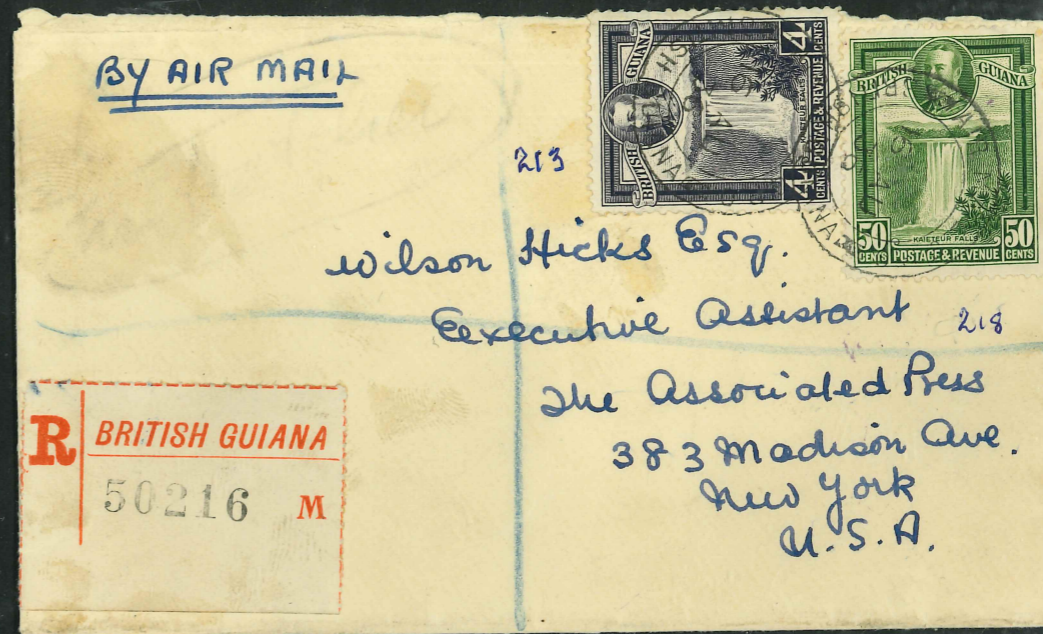 BY AIR MAIL
4
CENTS
BRITISH GUIANA
KAIETEUR FALLS
POSTAGE & REVENUE
4
CENTS
BRITISH GUIANA
KAIETEUR FALLS
50 CENTS
POSTAGE & REVENUE
50 CENTS
213
Wilson Hicks Esq.
Executive Assistant
218
The Associated Press
383 Madison Ave.
New York
U.S.A.
R
BRITISH GUIANA
50216 M